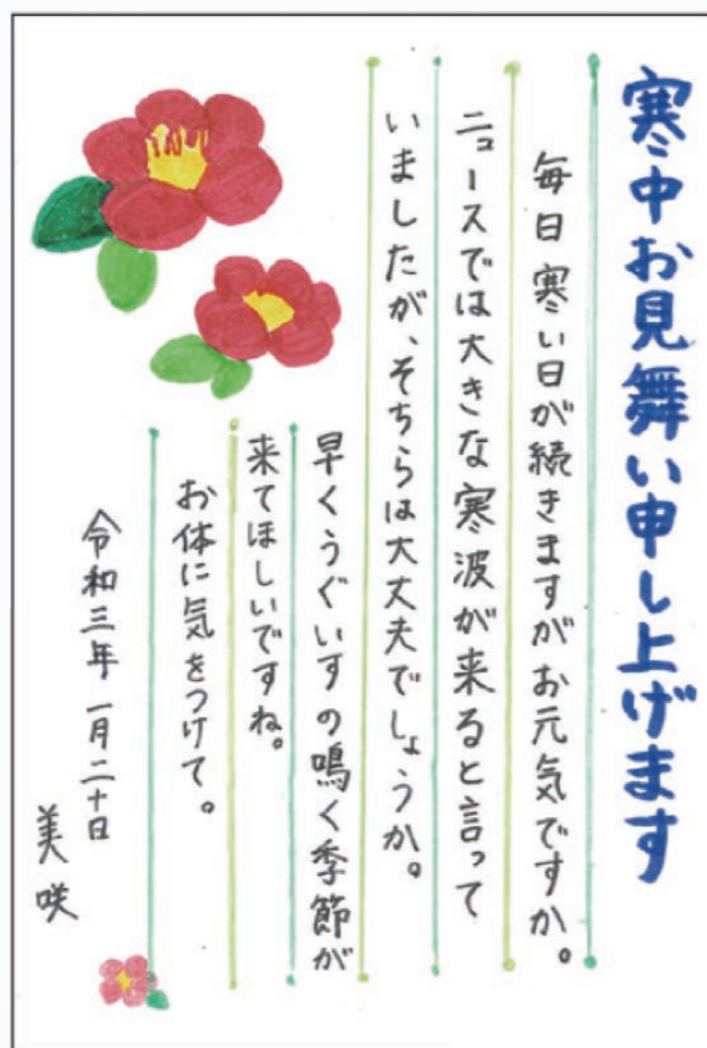 寒中お見舞い申し上げます
毎日寒い日が続きますがお元気ですか。
ニュースでは大きな寒波が来ると言って
いましたが、そちらは大丈夫でしょうか。
早くうぐいすの鳴く季節が
来てほしいですね。
お体に気をつけて。
令和三年一月二十日
美咲